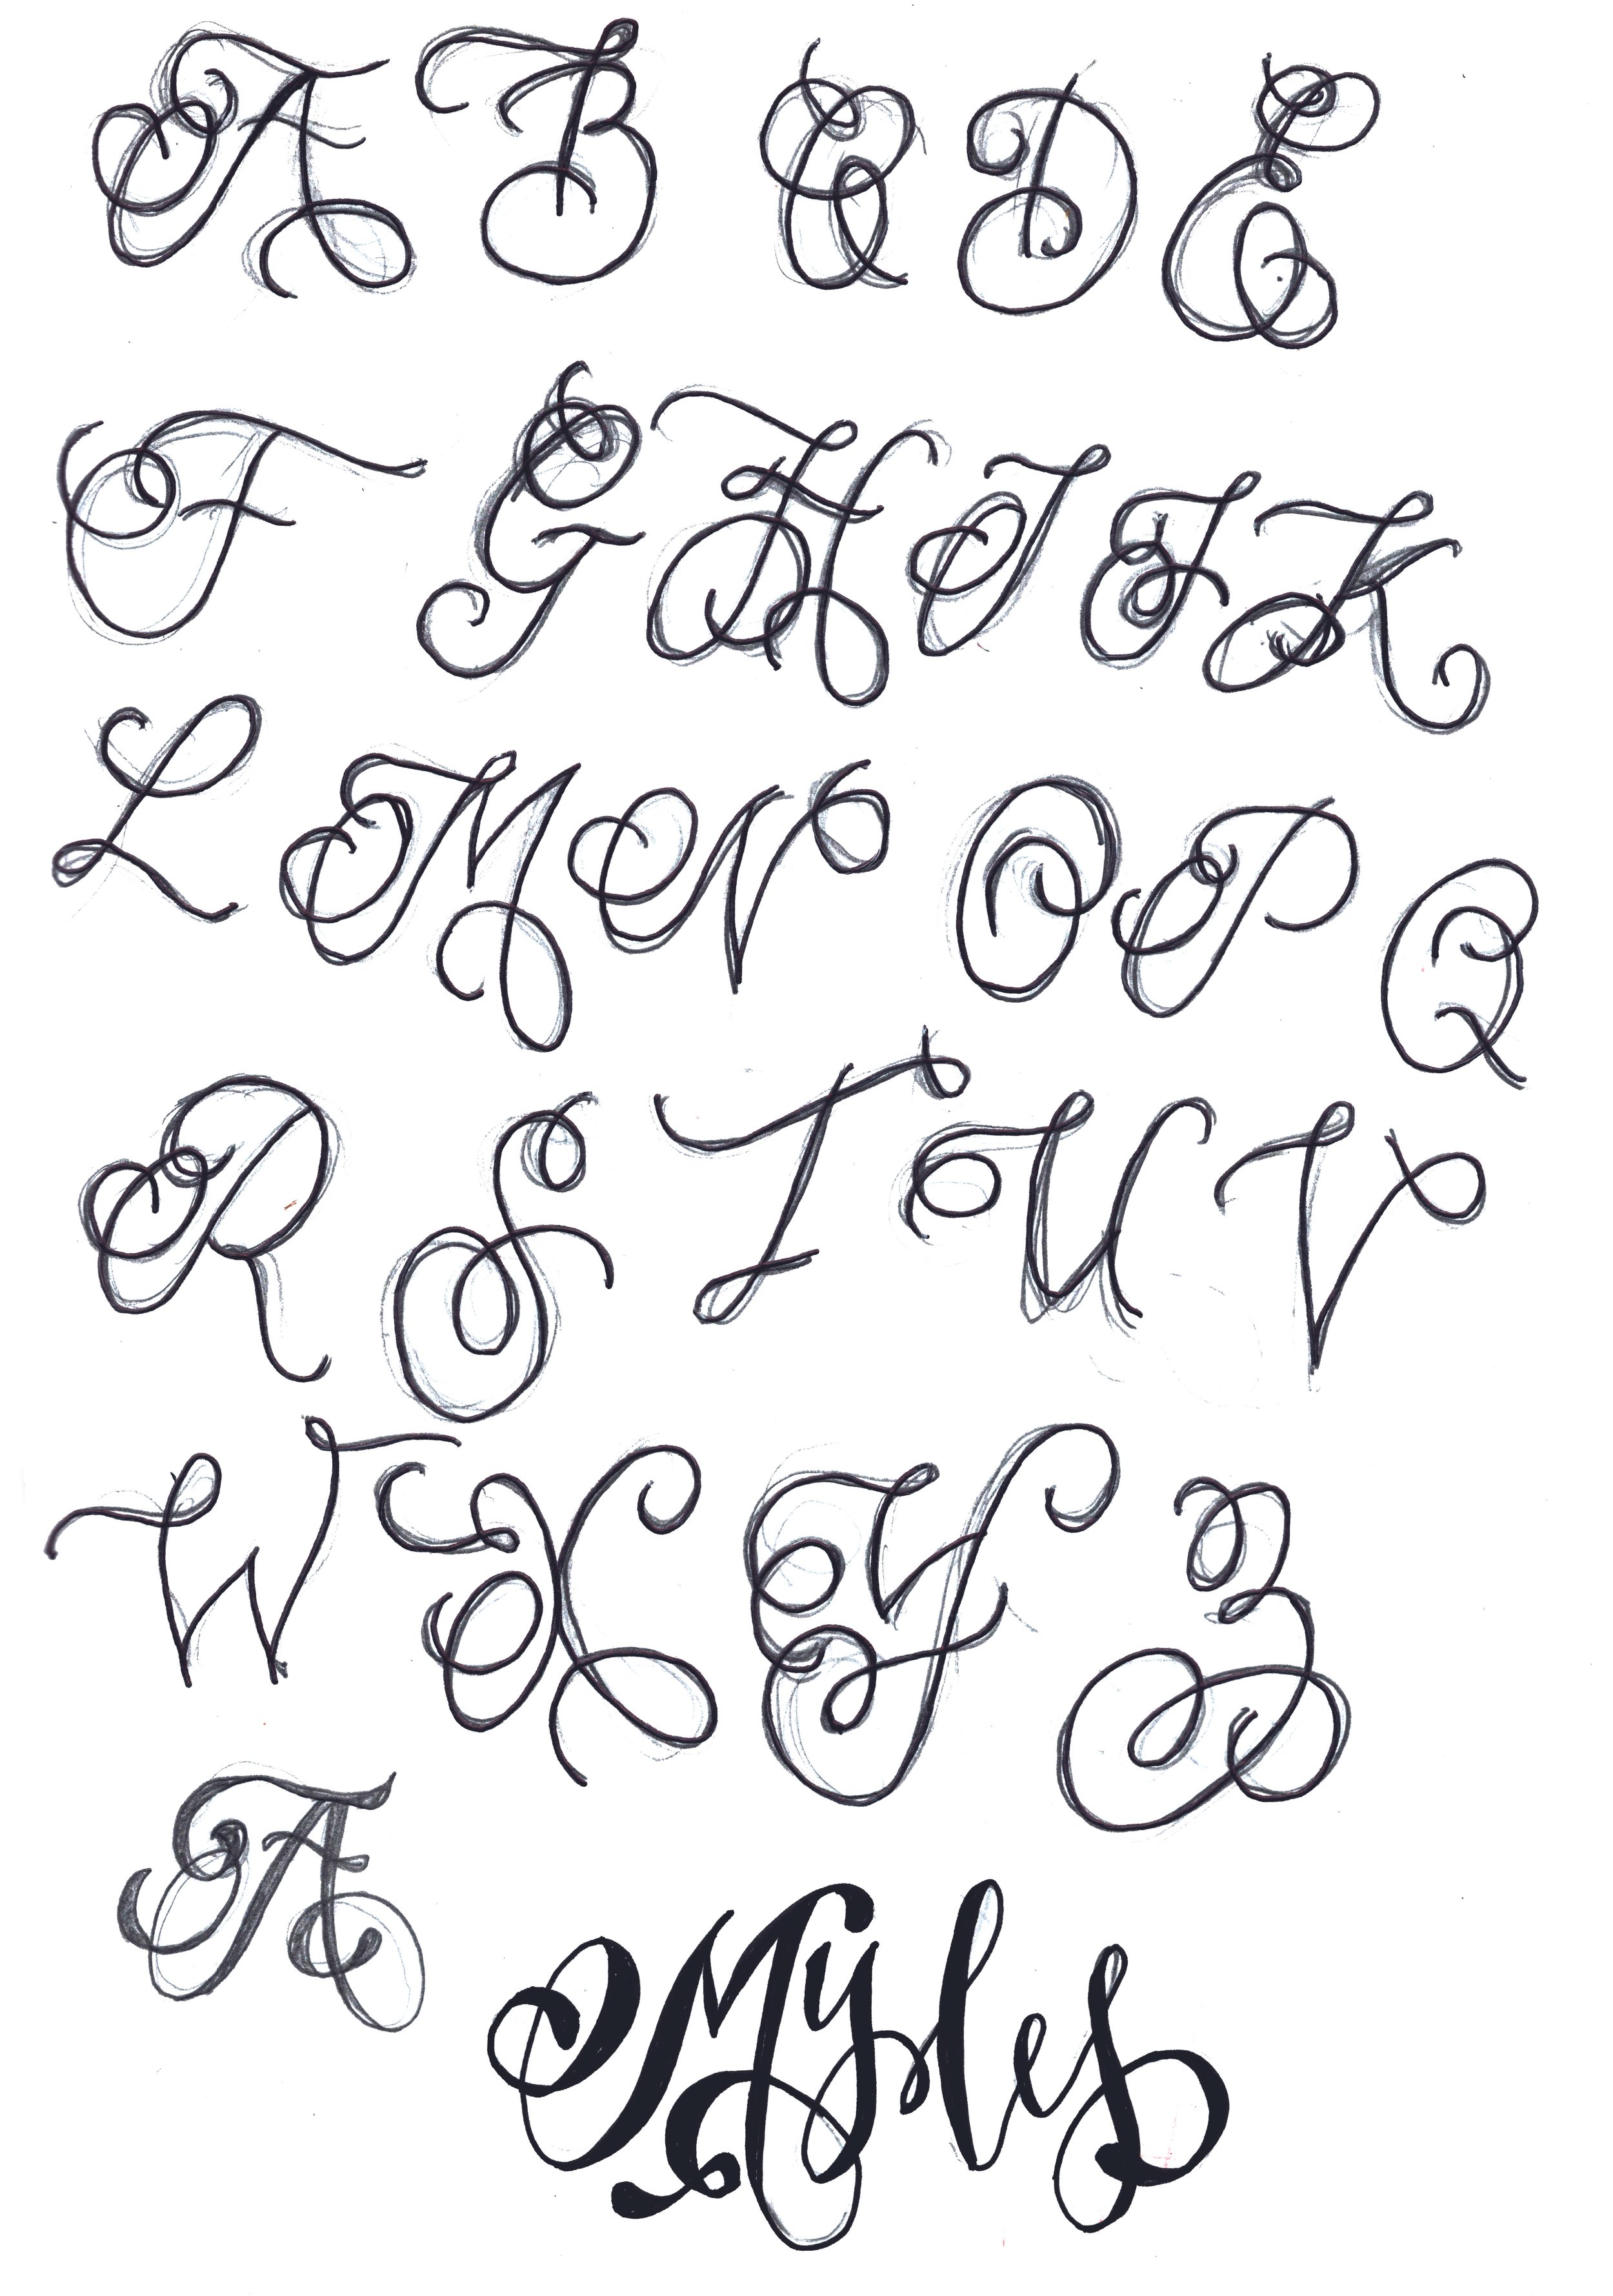 A B C D E
F G H I J K
L M N O P Q
R S T U V
W X Y Z
A
Myles